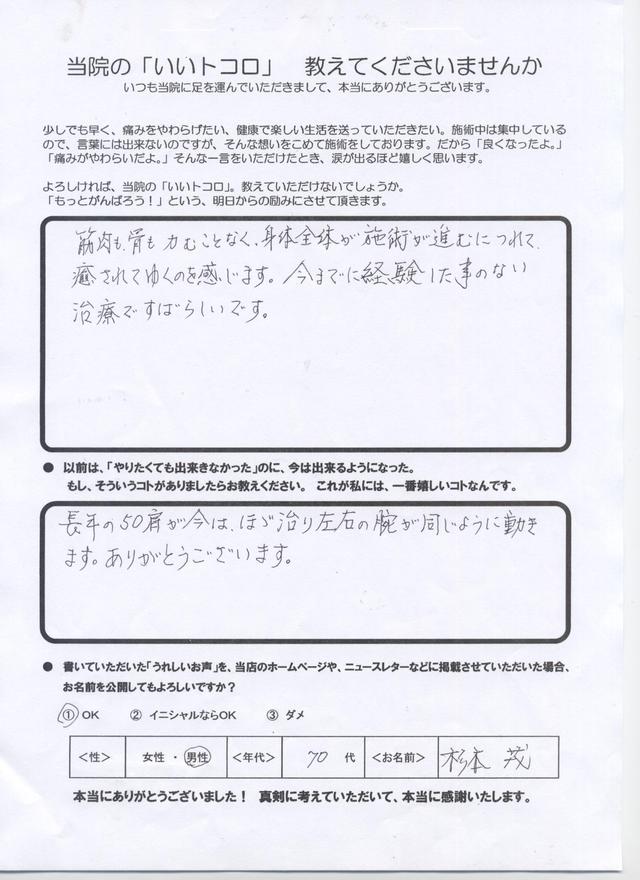 当院の「いいトコロ」　教えてくださいませんか
いつも当院に足を運んでいただきまして、本当にありがとうございます。
少しでも早く、痛みをやわらげたい、健康で楽しい生活を送っていただきたい。施術中は集中している
ので、言葉には出来ないのですが、そんな想いをこめて施術をしております。だから「良くなったよ。」
「痛みがやわらいだよ。」そんな一言をいただけたとき、涙が出るほど嬉しく思います。
よろしければ、当院の「いいトコロ」。教えていただけないでしょうか。
「もっとがんばろう！」という、明日からの励みにさせて頂きます。
筋肉も、骨も力むことなく、身体全体が施術が進むにつれて、
癒されてゆくのを感じます。今までに経験した事のない
治療ですばらしいです。
● 以前は、「やりたくても出来きなかった」のに、今は出来るようになった。
もし、そういうコトがありましたらお教えください。 これが私には、一番嬉しいコトなんです。
長年の50肩が今は、ほゞ治り左右の腕が同じように動き
ます。ありがとうございます。
● 書いていただいた「うれしいお声」を、当店のホームページや、ニュースレターなどに掲載させていただいた場合、
お名前を公開してもよろしいですか？
① OK　② イニシャルならOK　③ ダメ
＜性＞　女性 ・ 男性　＜年代＞　70 代　＜お名前＞　杉本 茂
本当にありがとうございました！ 真剣に考えていただいて、本当に感謝いたします。